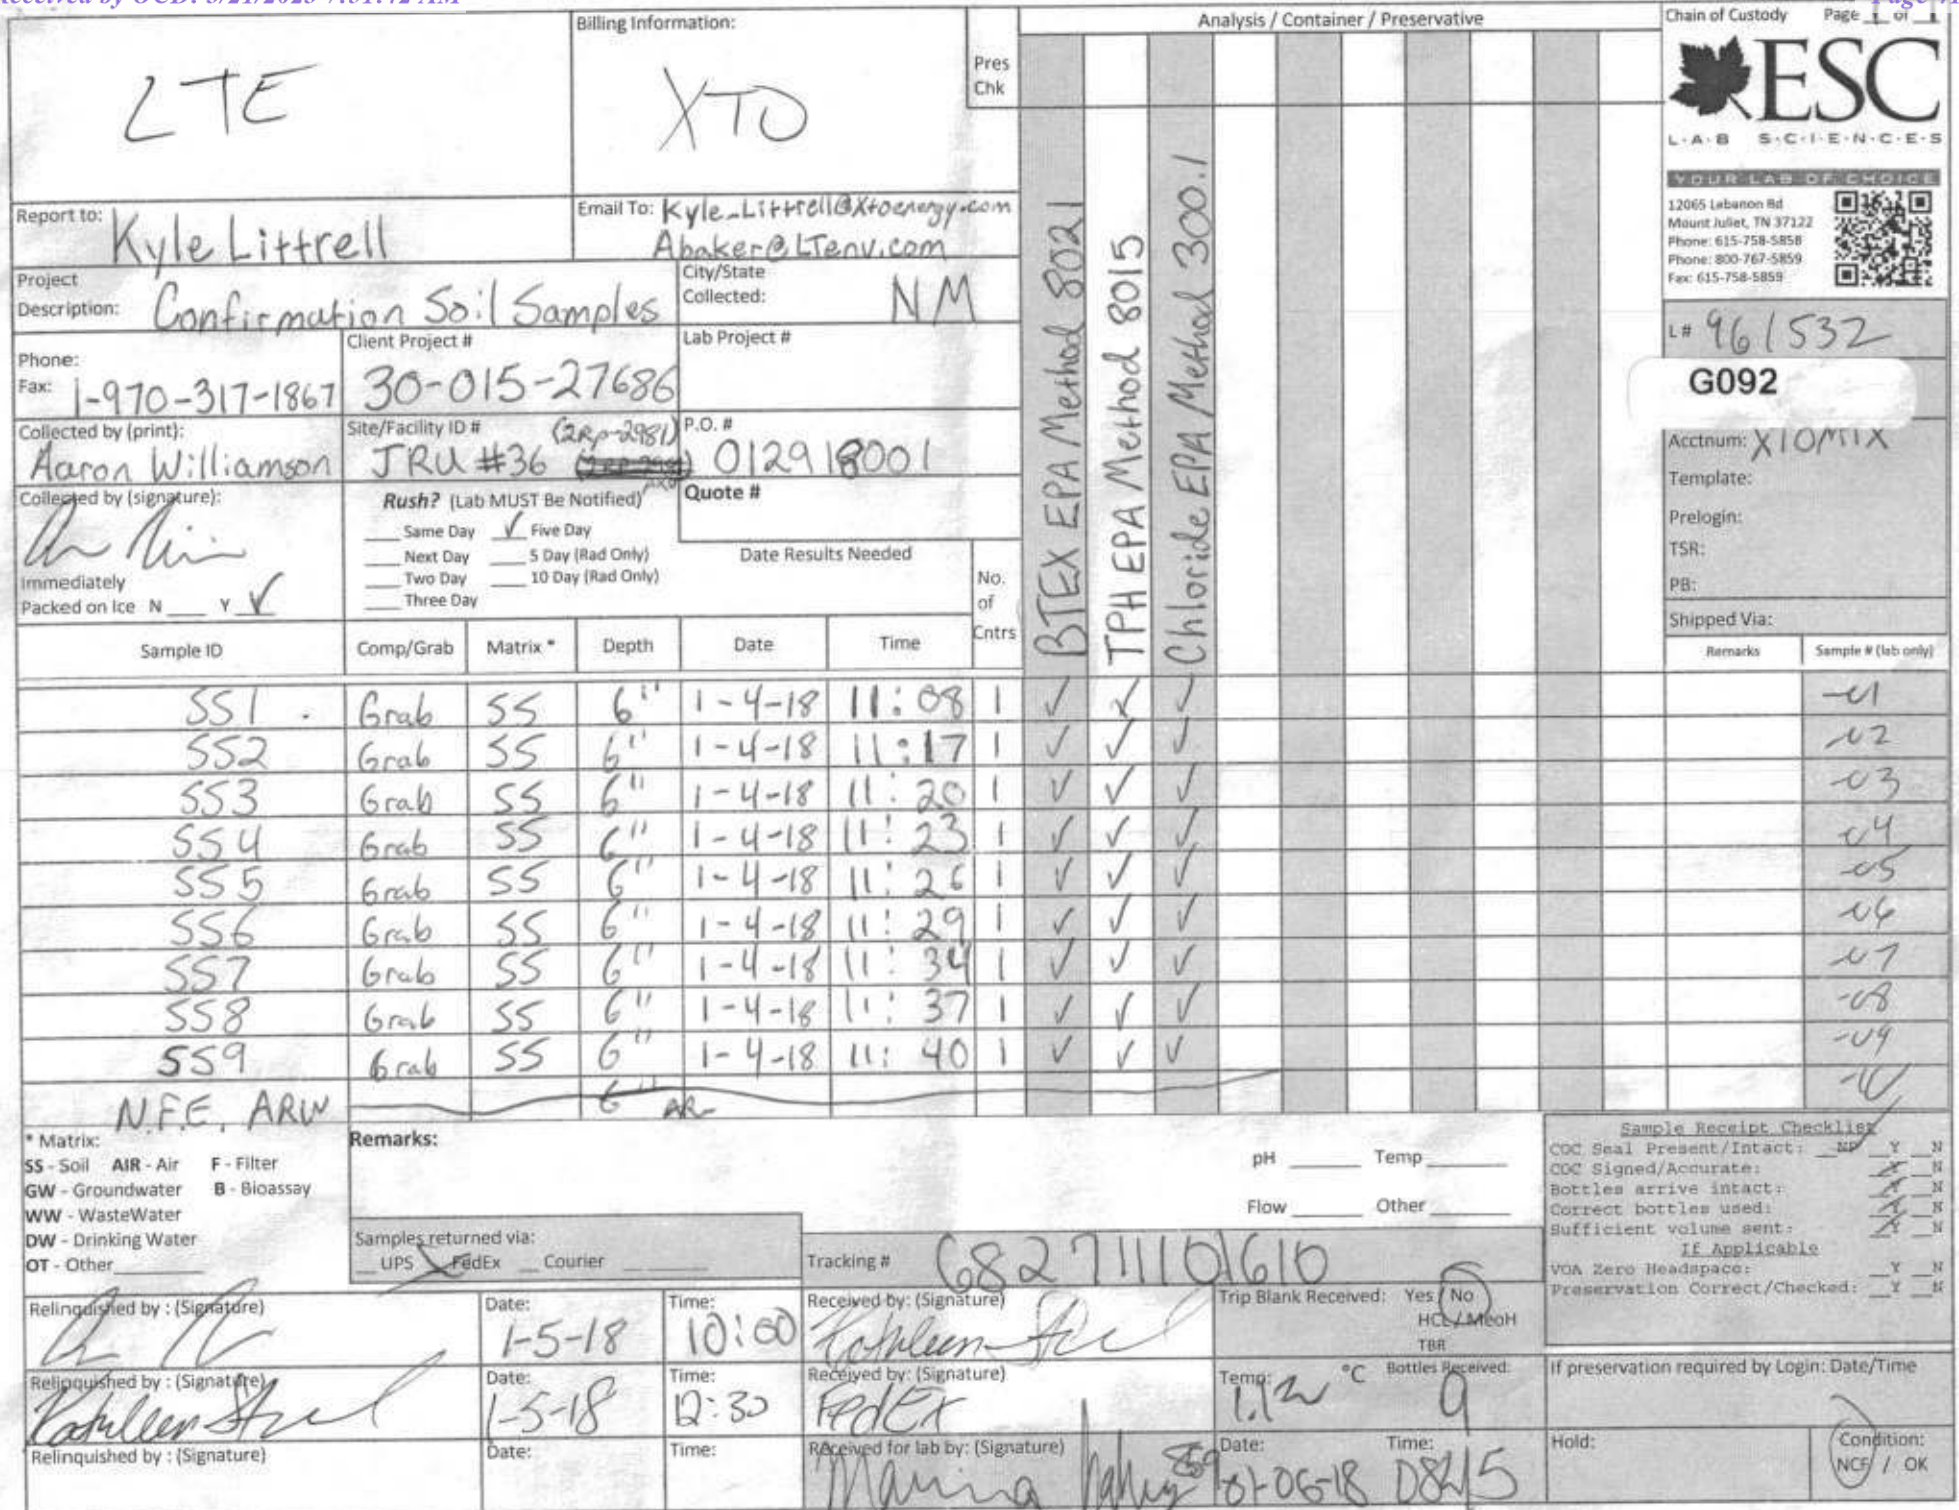 Received by OCD: 3/21/2023 7:51:42 AM
Billing Information:
Analysis / Container / Preservative
Chain of Custody Page 1 of 1
LTE
XTO
Pres
Chk
ESC
L·A·B S·C·I·E·N·C·E·S
YOUR LAB OF CHOICE
12065 Lebanon Rd
Mount Juliet, TN 37122
Phone: 615-758-5858
Phone: 800-767-5859
Fax: 615-758-5859
Report to: Kyle Littrell
Email To: Kyle_Littrell@Xtoenergy.com
Abaker@LTenv.com
Project
Description: Confirmation Soil Samples
City/State
Collected: NM
Phone:
Fax: 1-970-317-1867
Client Project #
30-015-27686
Lab Project #
L# 961532
G092
Collected by (print):
Aaron Williamson
Site/Facility ID # (2RP-2981)
JRU #36
P.O. #
012918001
Acctnum: XTOMTX
Template:
Prelogin:
TSR:
PB:
Shipped Via:
Collected by (signature):
Immediately
Packed on Ice N ___ Y √
Rush? (Lab MUST Be Notified)
___ Same Day √ Five Day
___ Next Day ___ 5 Day (Rad Only)
___ Two Day ___ 10 Day (Rad Only)
___ Three Day
Quote #
Date Results Needed
No.
of
Cntrs
BTEX EPA Method 8021
TPH EPA Method 8015
Chloride EPA Method 300.1
Sample ID Comp/Grab Matrix * Depth Date Time Remarks Sample # (lab only)
SS1 Grab SS 6" 1-4-18 11:08 1 ✓ ✓ ✓ -01
SS2 Grab SS 6" 1-4-18 11:17 1 ✓ ✓ ✓ -02
SS3 Grab SS 6" 1-4-18 11:20 1 ✓ ✓ ✓ -03
SS4 Grab SS 6" 1-4-18 11:23 1 ✓ ✓ ✓ -04
SS5 Grab SS 6" 1-4-18 11:26 1 ✓ ✓ ✓ -05
SS6 Grab SS 6" 1-4-18 11:29 1 ✓ ✓ ✓ -06
SS7 Grab SS 6" 1-4-18 11:34 1 ✓ ✓ ✓ -07
SS8 Grab SS 6" 1-4-18 11:37 1 ✓ ✓ ✓ -08
SS9 Grab SS 6" 1-4-18 11:40 1 ✓ ✓ ✓ -09
N.F.E. ARW 6" AR -10
* Matrix:
SS - Soil AIR - Air F - Filter
GW - Groundwater B - Bioassay
WW - WasteWater
DW - Drinking Water
OT - Other
Remarks:
pH ___ Temp ___
Flow ___ Other ___
Sample Receipt Checklist
COC Seal Present/Intact: NP Y N
COC Signed/Accurate: Y N
Bottles arrive intact: Y N
Correct bottles used: Y N
Sufficient volume sent: Y N
If Applicable
VOA Zero Headspace: Y N
Preservation Correct/Checked: Y N
Samples returned via:
UPS FedEx Courier
Tracking # 682711101610
Relinquished by : (Signature)
Date:
1-5-18
Time:
10:00
Received by: (Signature)
Trip Blank Received: Yes / No
HCL / MeoH
TBR
Relinquished by : (Signature)
Date:
1-5-18
Time:
12:30
Received by: (Signature)
FedEx
Temp: °C
Bottles Received:
9
If preservation required by Login: Date/Time
Relinquished by : (Signature)
Date:
Time:
Received for lab by: (Signature)
Date:
01-06-18
Time:
0845
Hold:
Condition:
NCF / OK